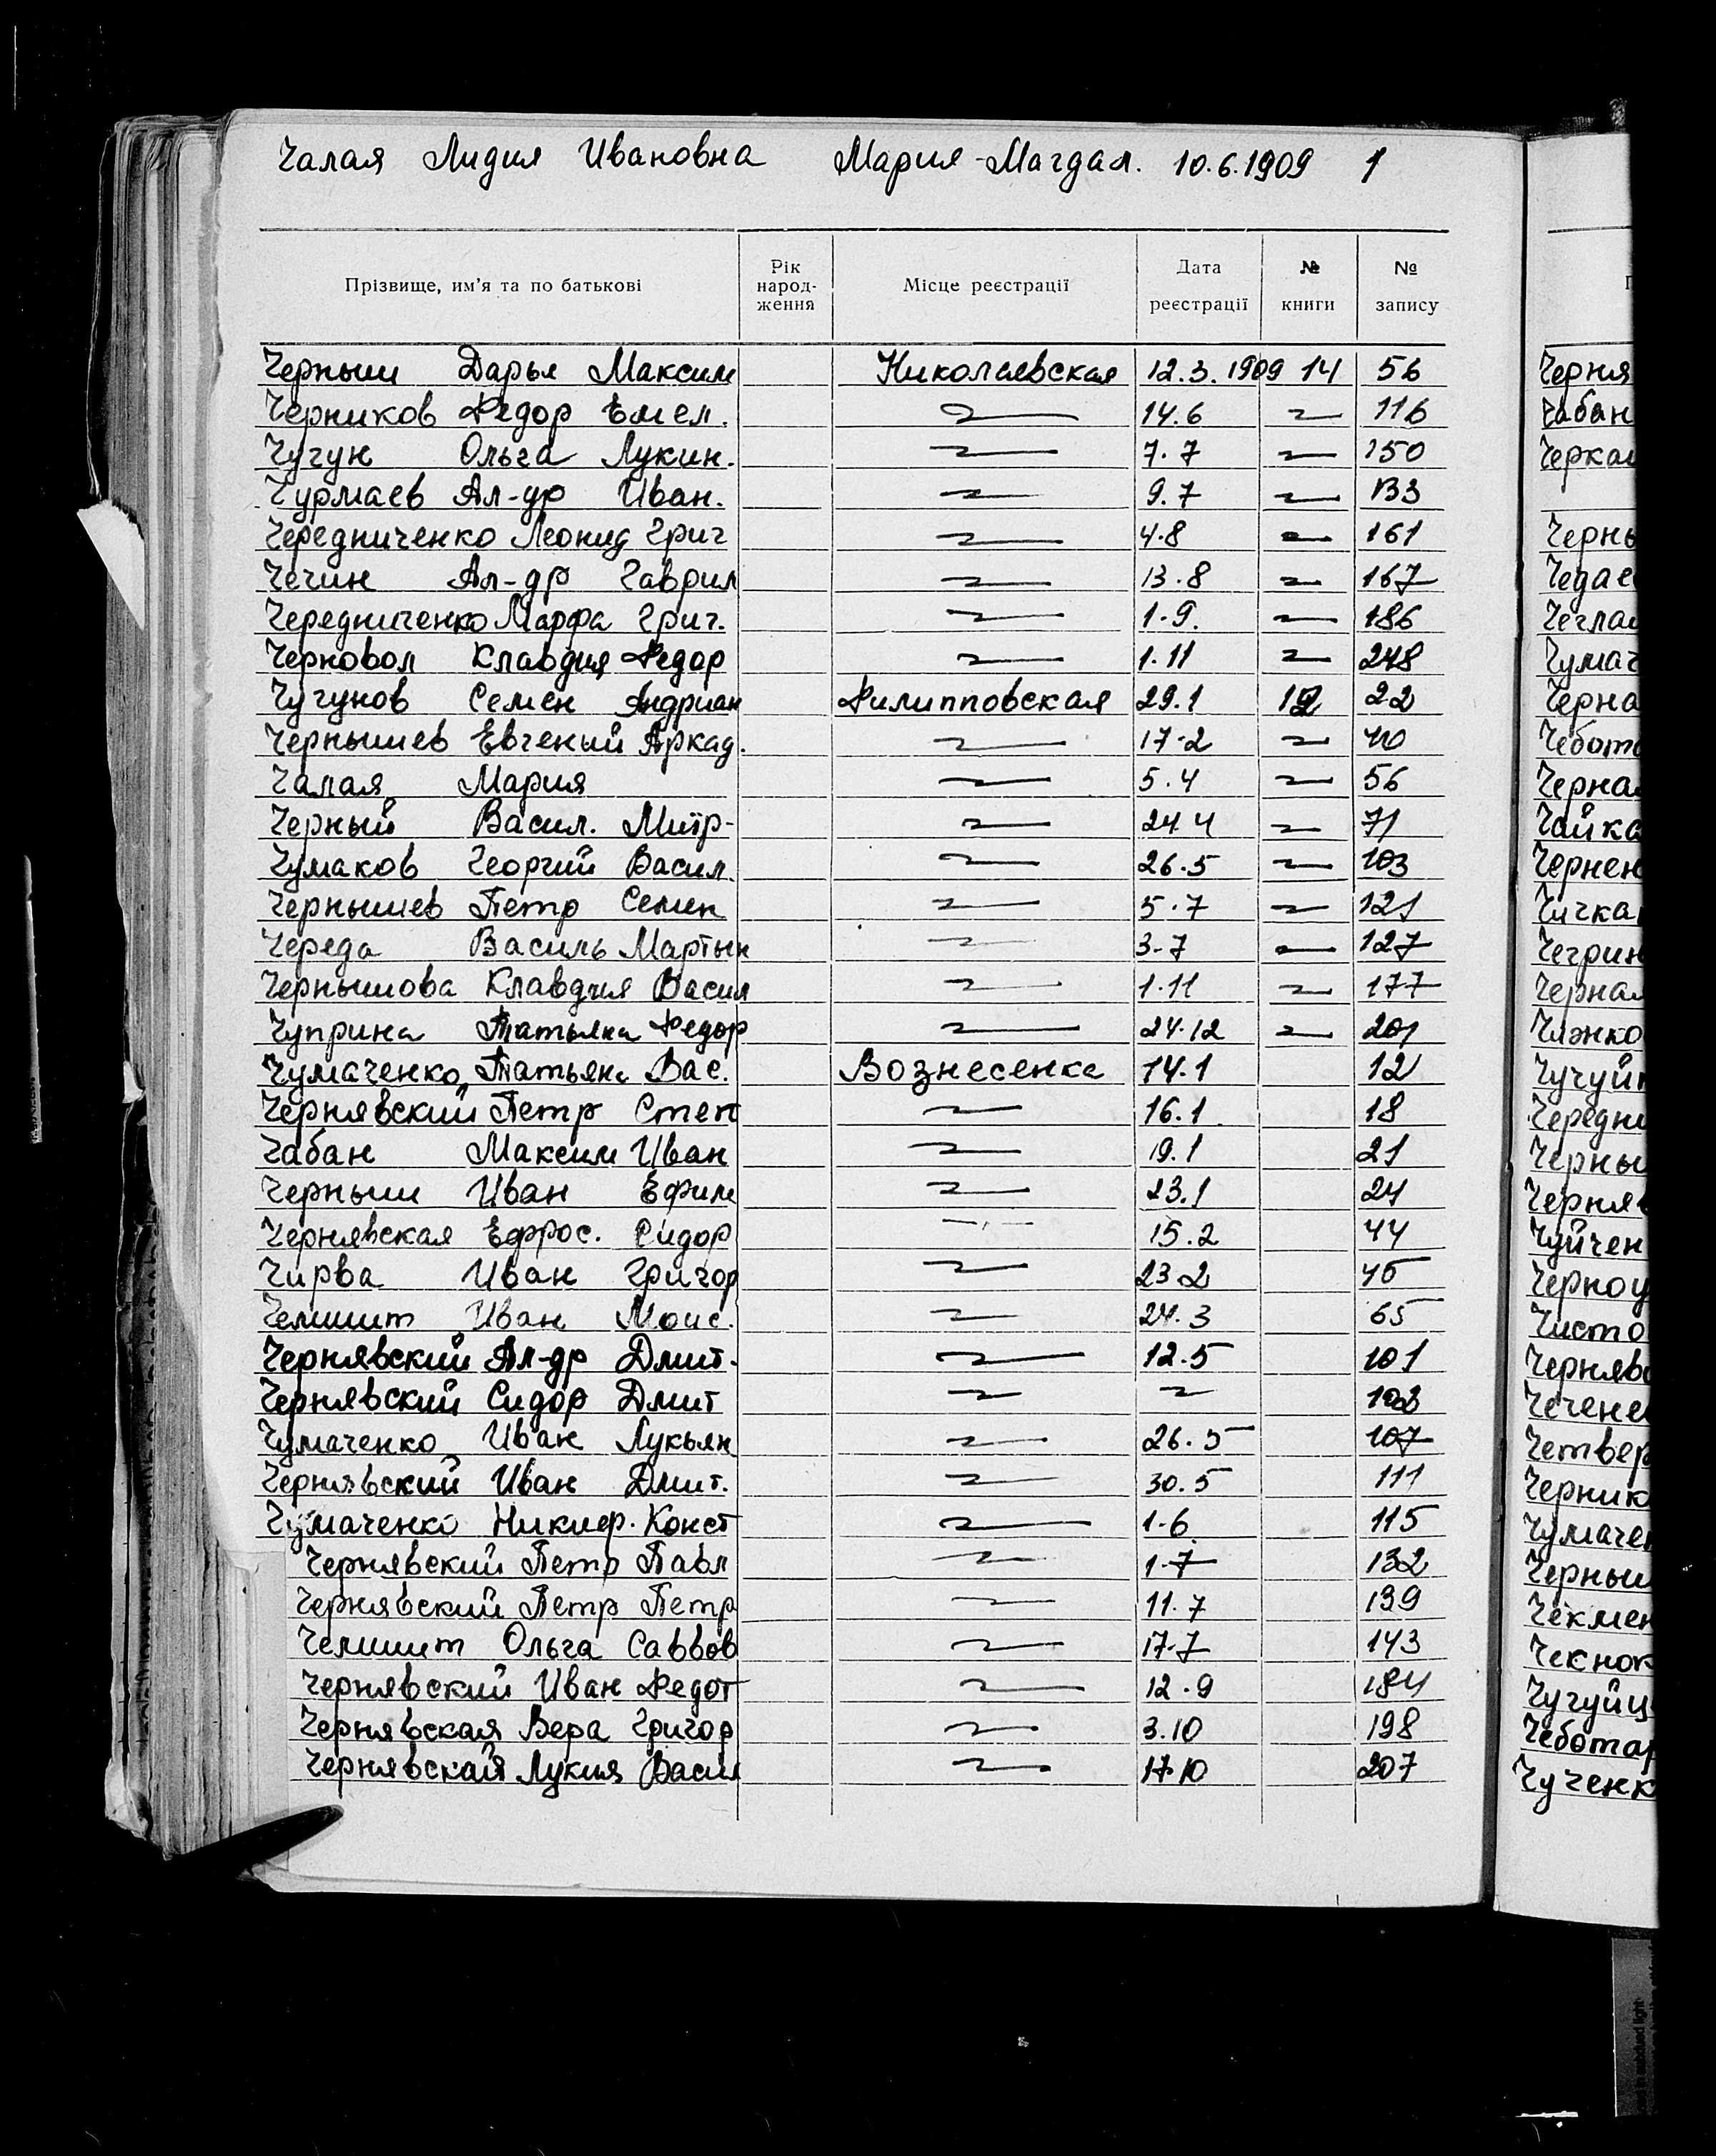 Чалая Лидия Ивановна Мария-Магдал. 10.6.1909 1
Прізвище, им’я та по батькові Рік народ-ження Місце реєстрації Дата реєстрації № книги № запису
Черныш Дарья Максим Николаевская 12.3.1909 14 56
Черников Федор Емел. 14.6 116
Чугун Ольга Лукин. 7.7 150
Чурмаев Ал-др Иван. 9.7 153
Чередниченко Леонид Григ 4.8 161
Чечин Ал-др Гаврил 13.8 167
Чередниченко Марфа Григ. 1.9. 186
Черновол Клавдия Федор 1.11 248
Чугунов Семен Андриан Филипповская 29.1 12 22
Чернышев Евгений Аркад. 17.2
Чалая Мария 5.4 56
Черный Васил. Митр- 24 4 71
Чумаков Георгий Васил. 26.5 103
Чернышев Петр Семен 5.7 121
Череда Василь Мартын 3-7 127
Чернышова Клавдия Васил 1.11 177
Чуприна Татьяна Федор 24.12 201
Чумаченко Татьяна Вас. Вознесенка 14.1 12
Чернявский Петр Степ 16.1 18
Чабан Максим Иван 19.1 21
Черныш Иван Ефим 23.1 24
Чернявская Ефрос. Сидор 15.2 44
Чирва Иван Григор 23 2 45
Чемшит Иван Моис. 24.3 65
Чернявский Ал-др Дмит. 12.5 101
Чернявский Сидор Дмит 102
Чумаченко Иван Лукьян 26.5 107
Чернявский Иван Дмит. 30.5 111
Чумаченко Никиф. Конст 1.6 115
Чернявский Петр Павл 1.7 132
Чернявский Петр Петр 11.7 139
Чемшит Ольга Саввов 17.7 143
Чернявский Иван Федот 12.9 184
Чернявская Вера Григор 3.10 198
Чернявская Лукия Васил 17 10 207